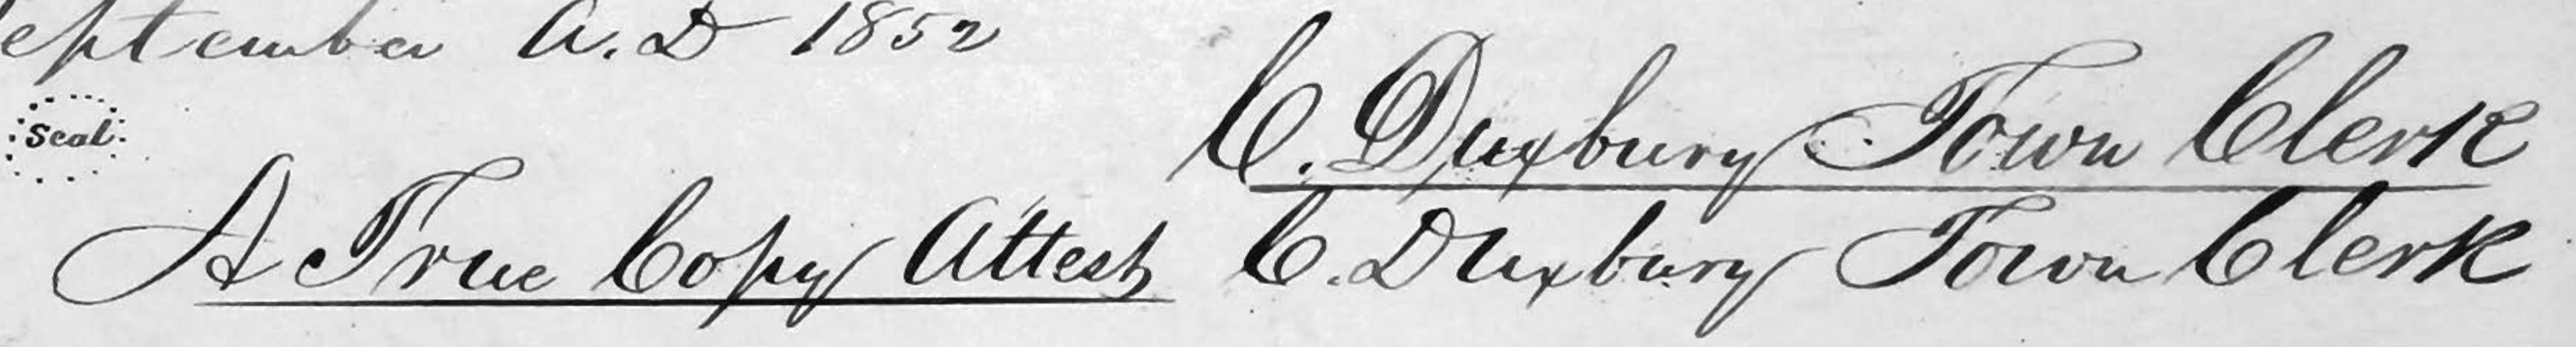 eptember A.D 1852
C. Duxbury Town Clerk
Seal
A True Copy Attest C. Duxbury Town Clerk